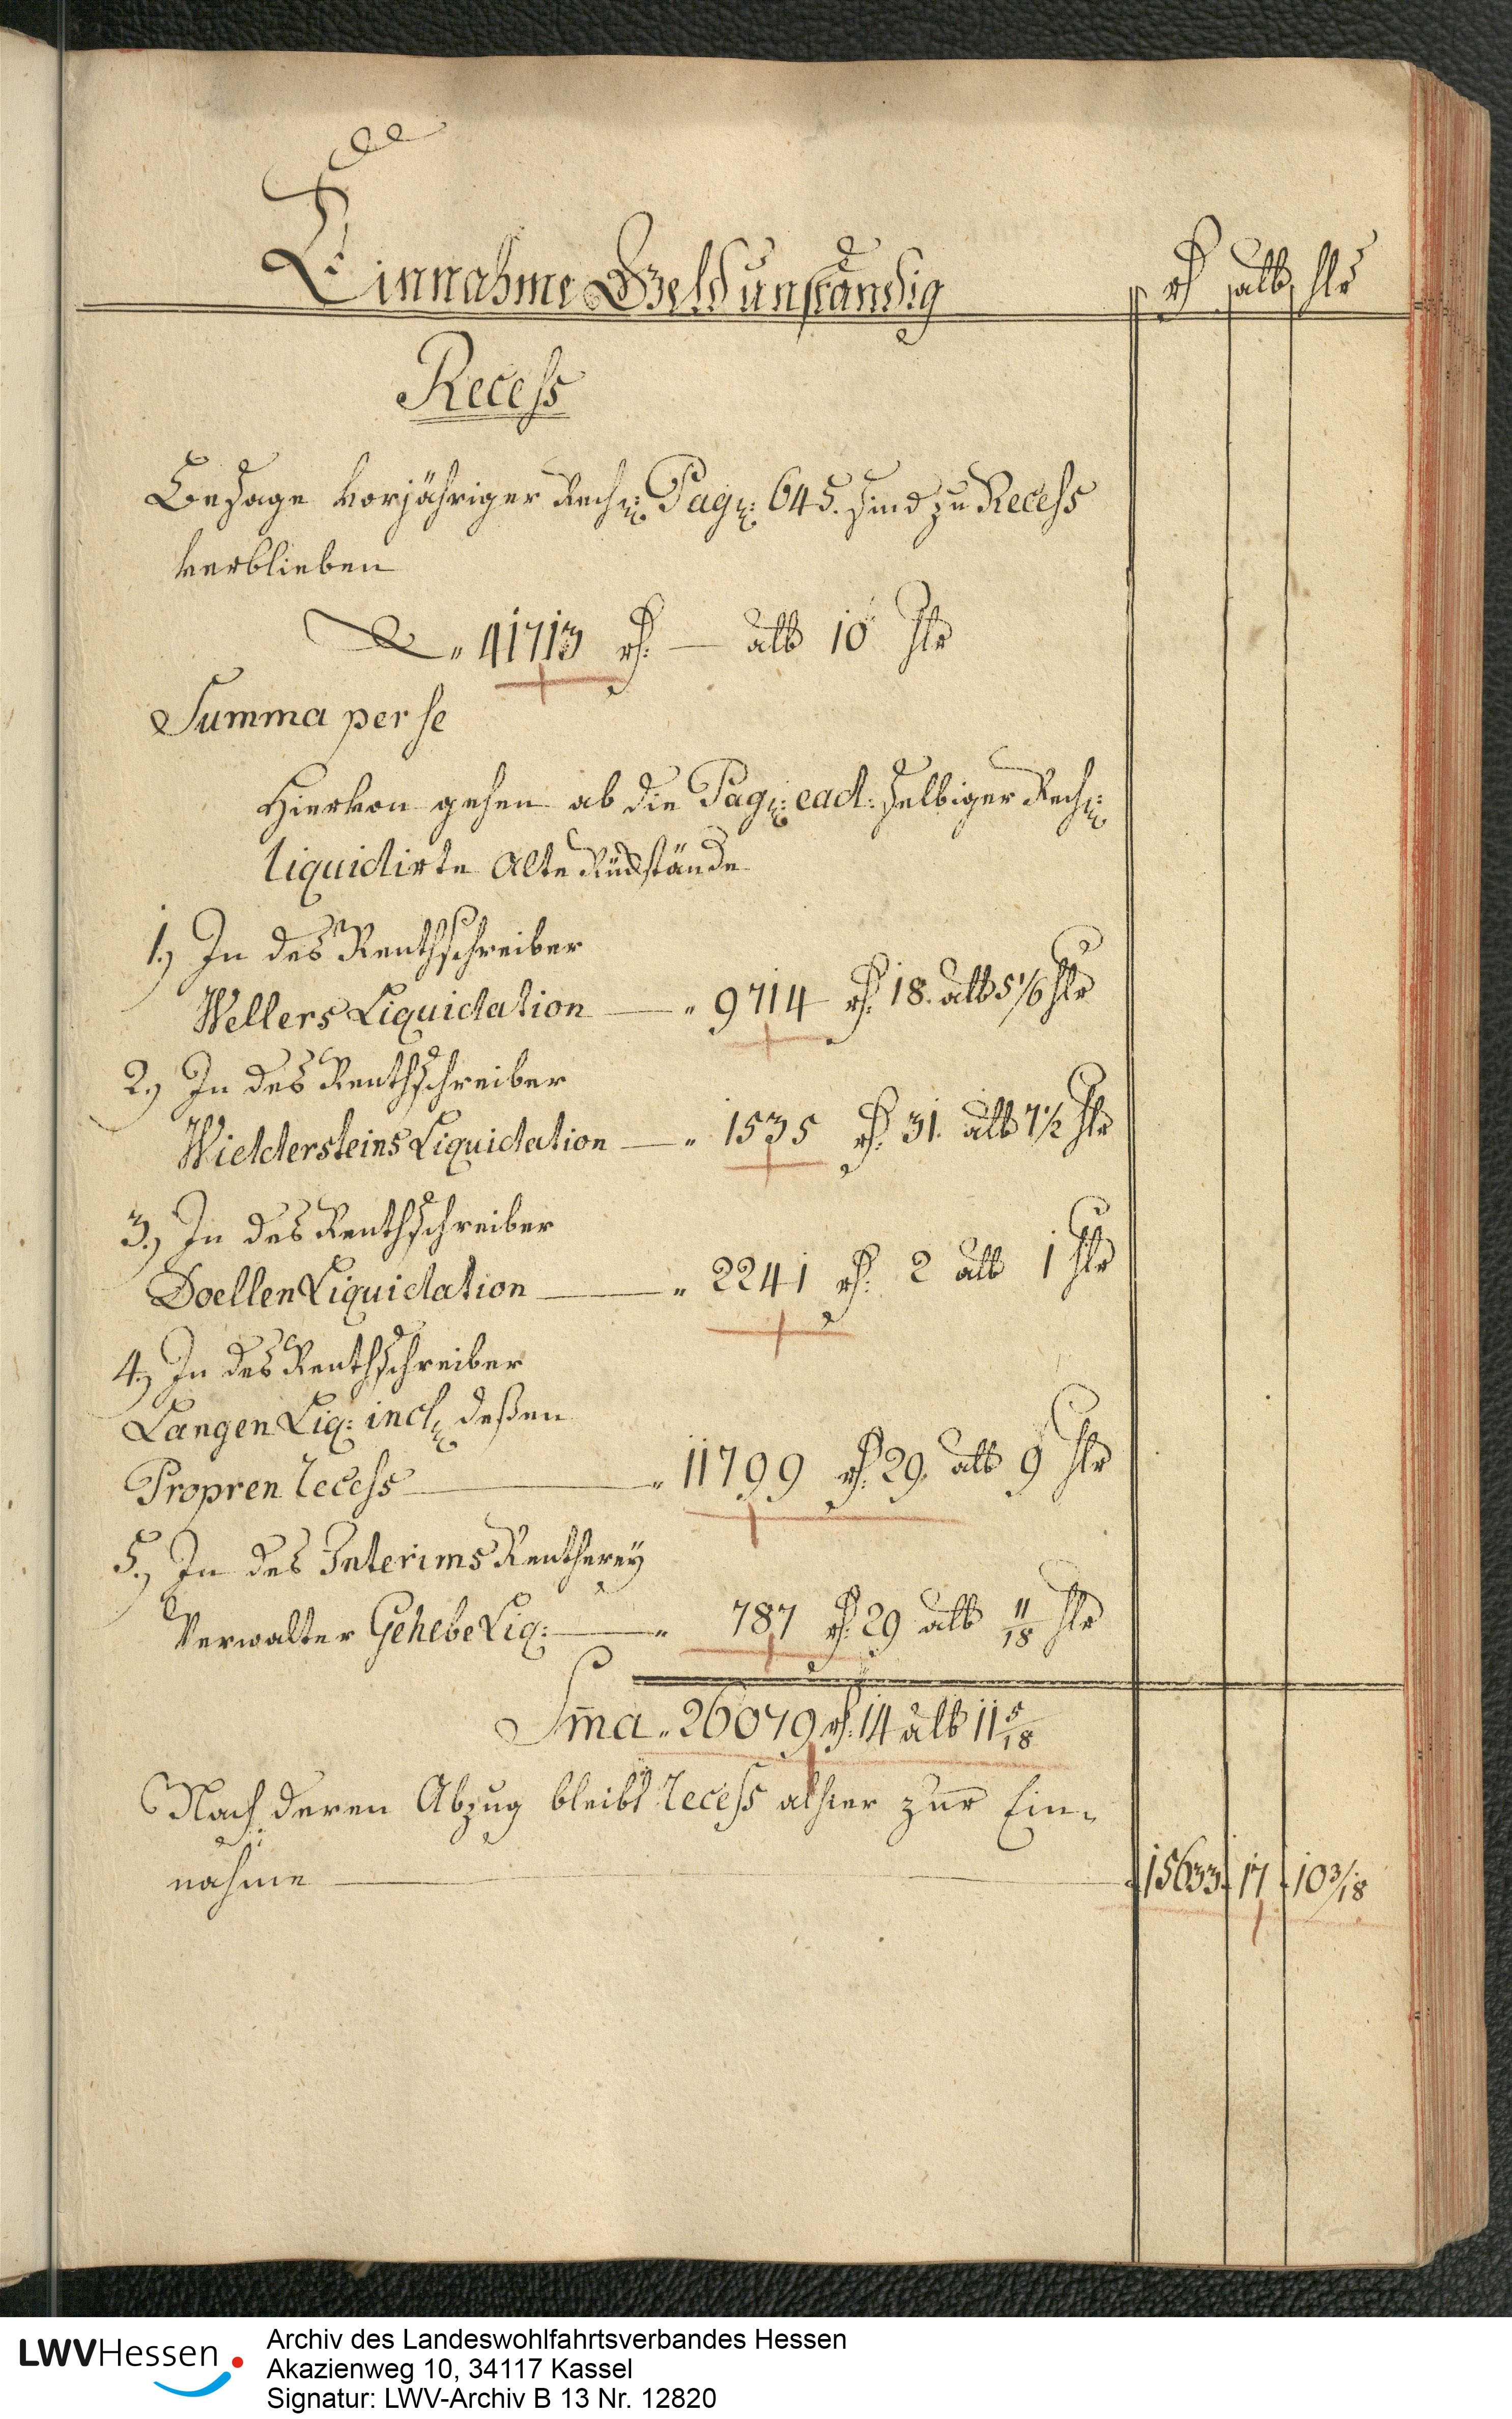 Einnahme Geld unständig
rh alb hlr
Recess
Besage vorjähriger Rech: Pag: 645. sind zu Recess
verblieben
41713 rh. — alb 10 hlr
Summa per se
Hiervon gehen ab die Pag: ead: selbiger Rech:
liquidirte Alte Rückstände
1.) In des Renthschreiber
Wellers Liquidation — 9714 rh. 18. alb 5 1/6 hlr
2.) In des Renthschreiber
Widdersteins Liquidation — 1535 rh. 31. alb 7 1/2 hlr
3.) In des Renthschreiber
Doellen Liquidation — 2241 rh. 2 alb 1 hlr
4.) In des Renthschreiber
Langen Liq: incl: deßen
Propren recess — 11799 rh. 29. alb 9 hlr
5.) In des Interims Rentherey
Verwalter Gehebe Liq: — 787 rh. 29 alb 11/18 hlr
Sm̄a. 26079 rh. 14 alb 11 5/18
Nach deren Abzug bleibt recess alhier zur Ein-
nahme — 15633 17 10 3/18
LWVHessen
Archiv des Landeswohlfahrtsverbandes Hessen
Akazienweg 10, 34117 Kassel
Signatur: LWV-Archiv B 13 Nr. 12820